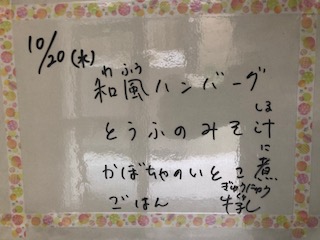 10/20(水)
わふう
和風ハンバーグ
しる
とうふのみそ汁
に
かぼちゃのいとこ煮
ぎゅうにゅう
ごはん 牛乳